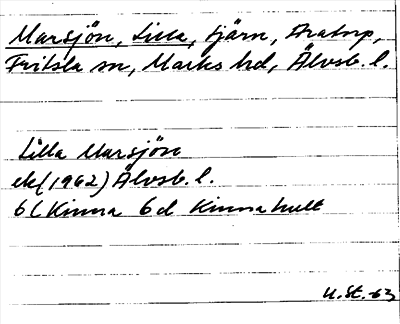 Marsjön, Lilla, tjärn, Aratorp,
Fritsla sn, Marks hd, Älvsb. l.
Lilla Marsjön
ek (1962) Älvsb. l.
6c Kinna 6d Kinnahult
U. St. -63